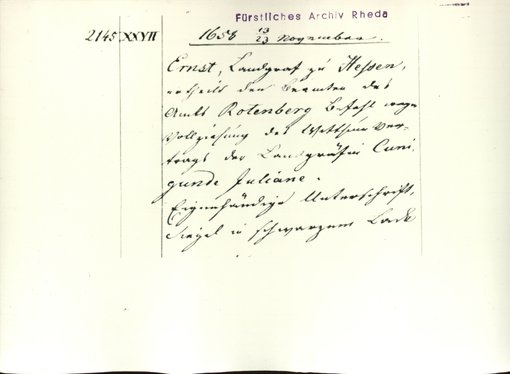 Fürstliches Archiv Rheda
2145 XXVII 1658 13/23 November.
Ernst, Landgraf zu Hessen,
ertheilt den Beamten des
Amts Rotenberg Befehl wegen
Vollziehung des Witthum Ver-
trags der Landgräfin Cuni-
gunde Juliane.
Eigenhändige Unterschrift,
Siegel in schwarzem Lack